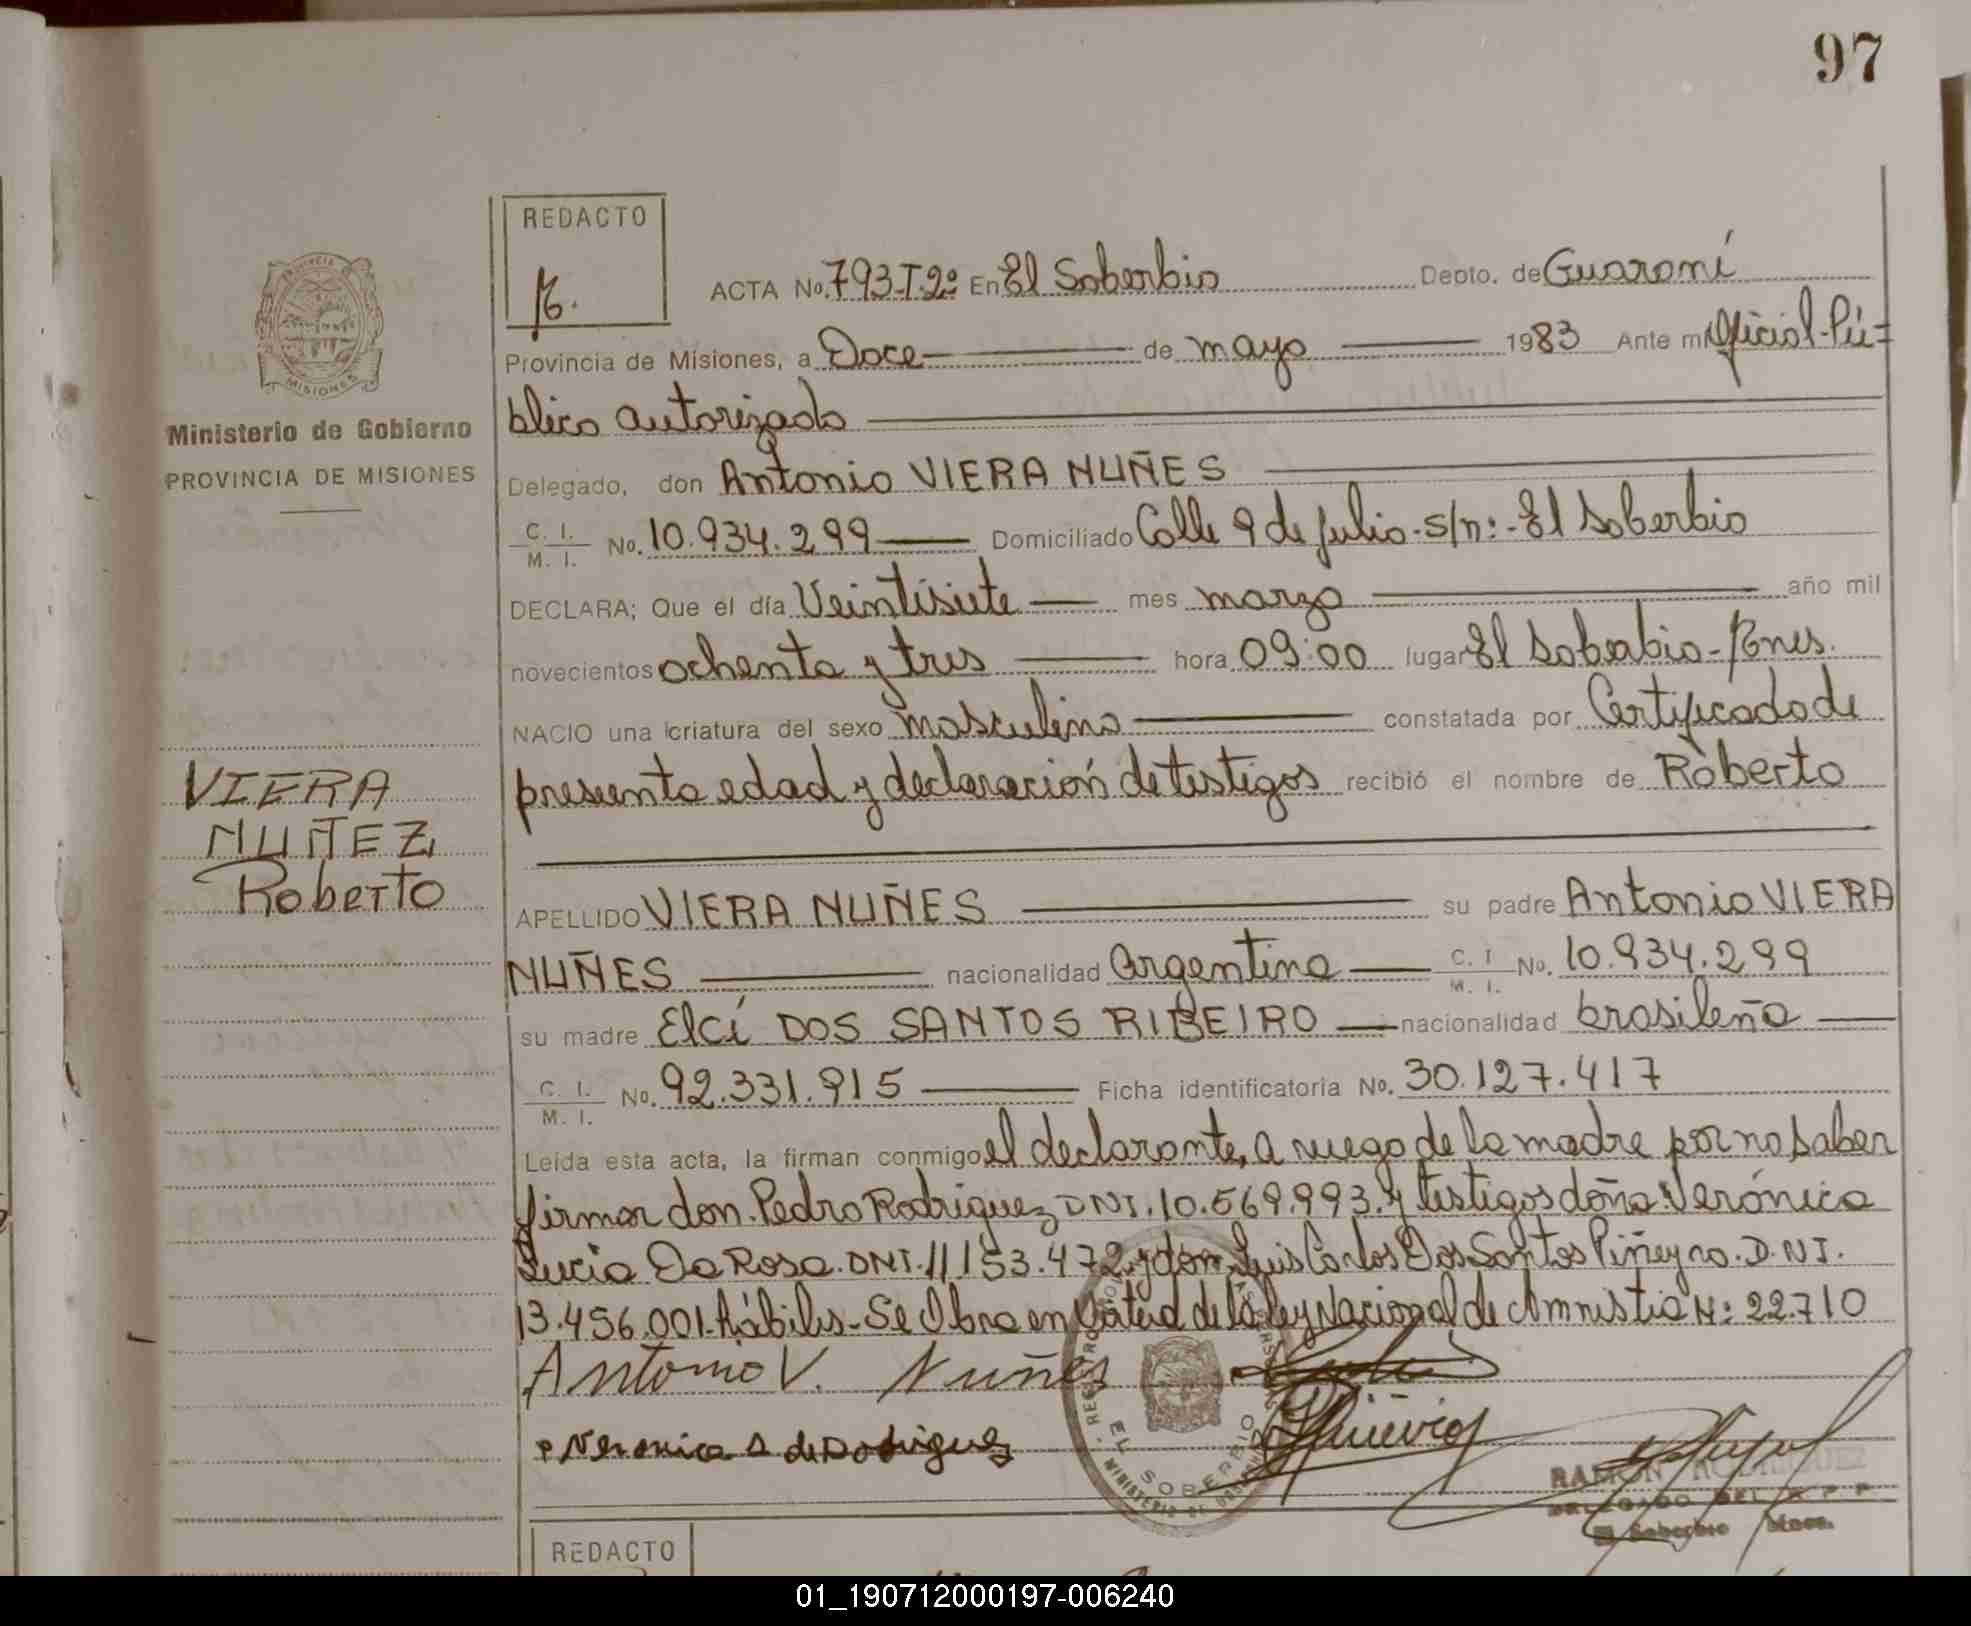 97
REDACTO
ACTA No. 793-T-2º En El Soberbio Depto. de Guaraní
Provincia de Misiones, a Doce de mayo 1983 Ante mí Oficial Pú=
blico autorizado
Delegado, don Antonio VIERA NUÑES
C. I.
M. I. No. 10.934.299 Domiciliado Calle 9 de julio-s/n:-El Soberbio
DECLARA; Que el día Veintisiete mes marzo año mil
novecientos ochenta y tres hora 09:00 lugar El Soberbio-Mnes.
NACIO una criatura del sexo masculino constatada por Certificado de
presunta edad y declaración de testigos recibió el nombre de Roberto
APELLIDO VIERA NUÑES su padre Antonio VIERA
NUÑES nacionalidad argentina C. I. M. I. No. 10.934.299
su madre Elcí DOS SANTOS RIBEIRO nacionalidad brasileña
C. I.
M. I. No. 92.331.915 Ficha identificatoria No. 30.127.417
Leída esta acta, la firman conmigo el declarante, a ruego de la madre por no saber
firmar don Pedro Rodriguez DNI.10.569.993.y testigos doña Verónica
Lucia Da Rosa.DNI.11.153.472.y don Luis Carlos Dos Santos Piñeyro.D.NI.
13.456.001-hábiles-Se Obra en de la ley Nacional de Amnistia N: 22.710
Antonio V. Nuñes
Veronica D de Rodriguez
EL SOBERBIO
RAMON RODRIGUEZ
DELEGADO DEL R P P
El Soberbio Mnes.
Ministerio de Gobierno
PROVINCIA DE MISIONES
VIERA
NUÑEZ,
Roberto
PROVINCIA
MISIONES
REDACTO
01_190712000197-006240